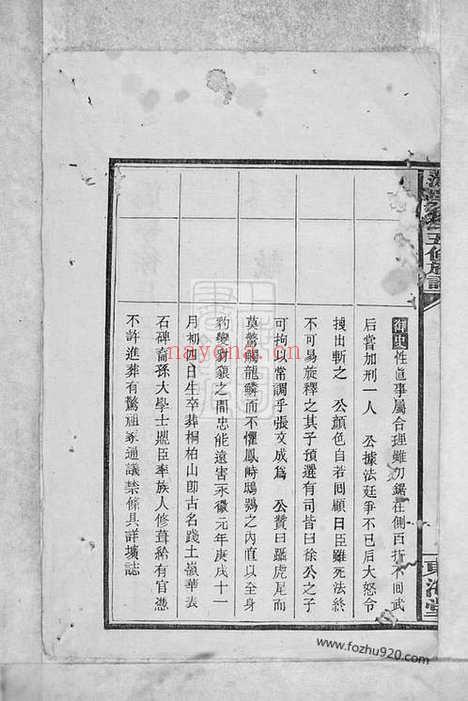 御史性眞事屬合理雖刀鋸在側百折不回武
后嘗加刑一人 公據法廷爭不已后大怒令
拽出斬之 公顏色自若囘顧曰臣雖死法終
不可易旋釋之其子預選有司皆曰徐公之子
可拘以常調乎張文成爲 公贊曰躡虎尾而
莫驚觸龍鱗而不懼鳳跱鴟鶚之內直以全身
豹變豺狼之間忠能遠害永徽元年庚戌十一
月初四日生卒葬桐柏山卽古名踐土嶺華表
石碑裔孫大學士階臣率族人修葺給有官憑
不許進葬有驚祖冢通議禁條具詳墳誌
五修族譜
東海堂
nayona.cn
www.fozhu920.com